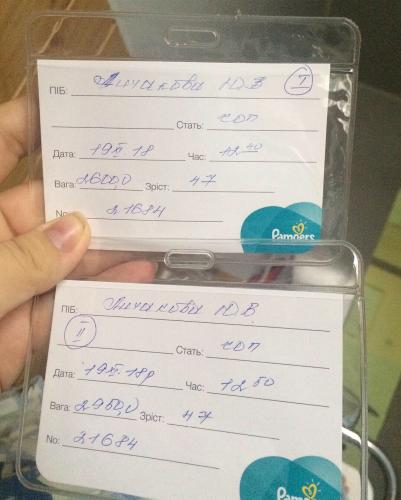 ПІБ: Личакова Ю В I
Стать: чол
Дата: 19 XI 18 Час: 12 40
Вага: 2600,0 Зріст: 47
No: 21684
Pampers
ПІБ: Личакова Ю В
II
Стать: чол
Дата: 19 XI. 18р Час: 12 50
Вага: 2950,0 Зріст: 47
No: 21684
Pampers